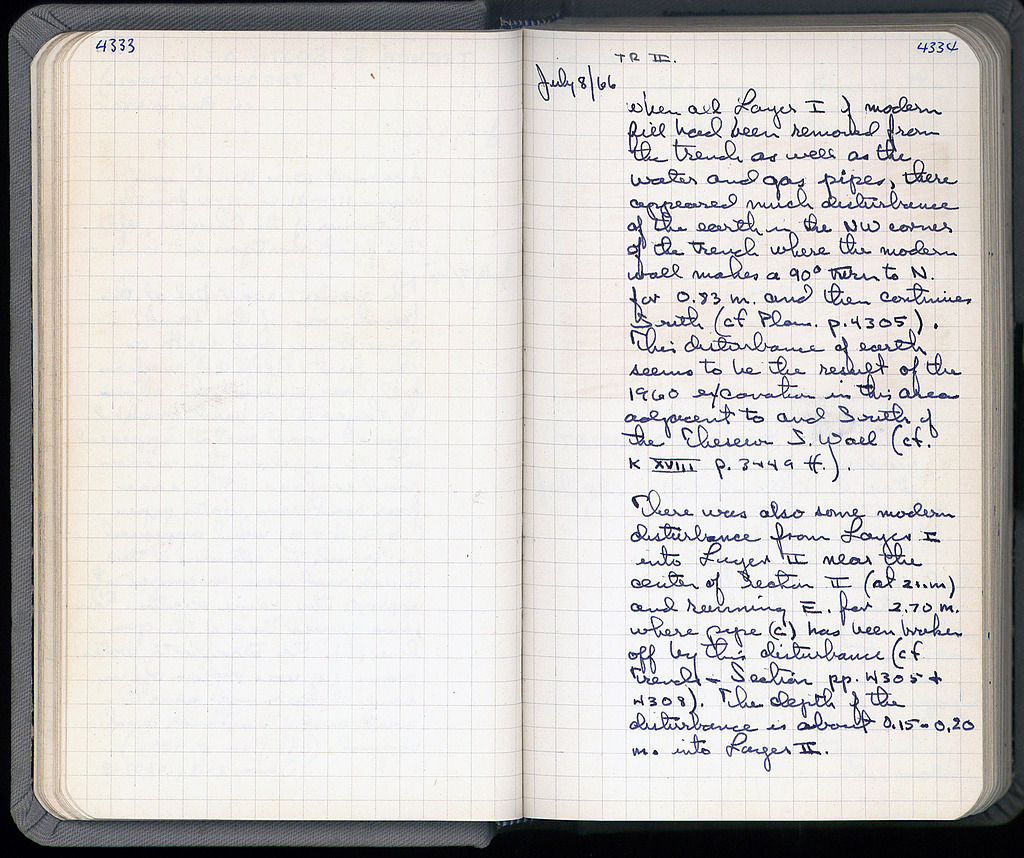 4333
4334
TR II.
July 8/66
When all Layer I of modern
fill had been removed from
the trench as well as the
water and gas pipes, there
appeared much disturbance
of the earth in the NW corner
of the trench where the modern
wall makes a 90° turn to N.
for 0.83 m. and then continues
South (cf Plan. p. 4305).
This disturbance of earth
seems to be the result of the
1960 excavation in this area
adjacent to and South of
the S. Wall (cf.
K XVIII p. 3449 ff.).
There was also some modern
disturbance from Layer I
into Layer II near the
center of Section II (at m)
and running E. for 2.70 m.
where pipe (c) has been broken
off by this disturbance (cf
Trench - Section pp. 4305 +
4308). The depth of the
disturbance is about 0.15-0.20
m. into Layer II.